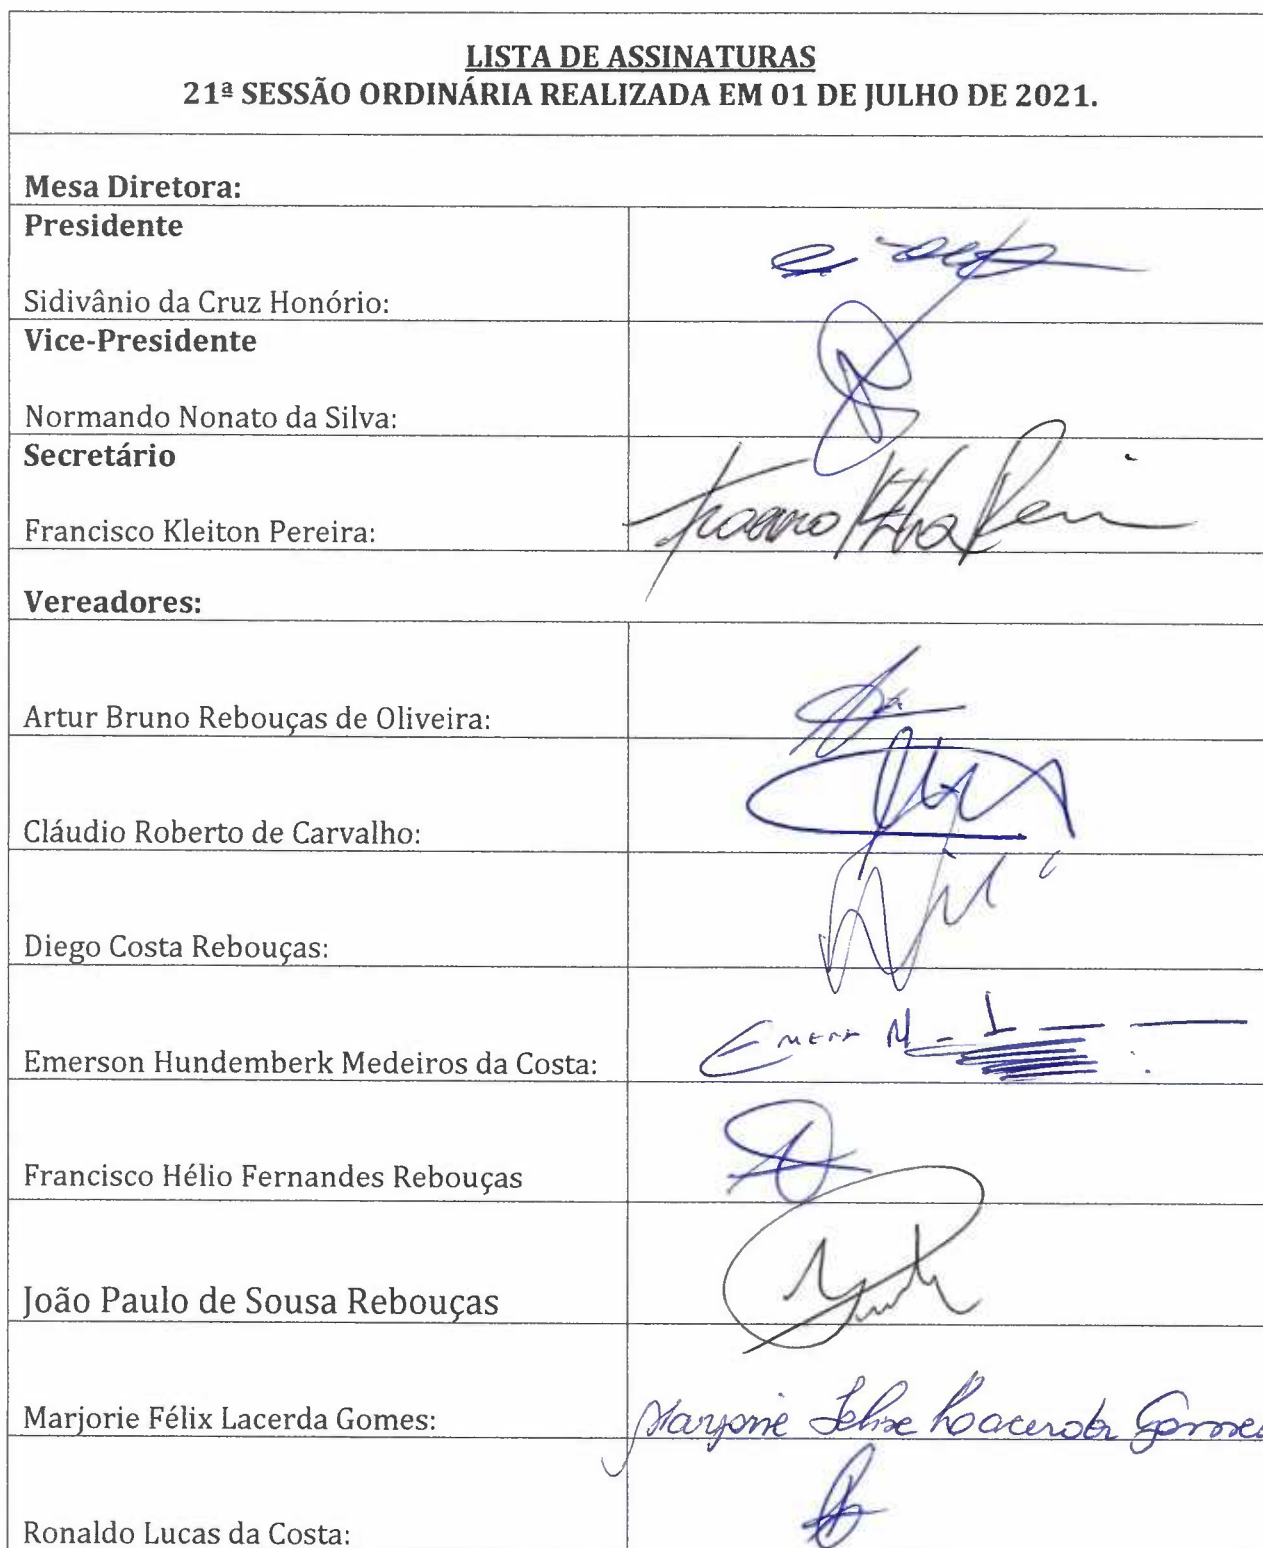 LISTA DE ASSINATURAS
21ª SESSÃO ORDINÁRIA REALIZADA EM 01 DE JULHO DE 2021.
Mesa Diretora:
Presidente
Sidivânio da Cruz Honório:
Vice-Presidente
Normando Nonato da Silva:
Secretário
Francisco Kleiton Pereira:
Vereadores:
Artur Bruno Rebouças de Oliveira:
Cláudio Roberto de Carvalho:
Diego Costa Rebouças:
Emerson Hundemberk Medeiros da Costa:
Francisco Hélio Fernandes Rebouças
João Paulo de Sousa Rebouças
Marjorie Félix Lacerda Gomes: Marjorie Felix Lacerda Gomes
Ronaldo Lucas da Costa: